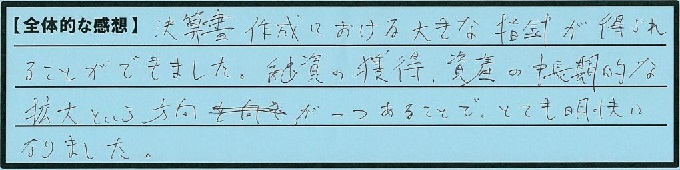 【全体的な感想】 決算書作成における大きな指針が得られ
ることができました。融資の獲得、資産の長期的な
拡大という方向が一つあることで、とても明快に
なりました。